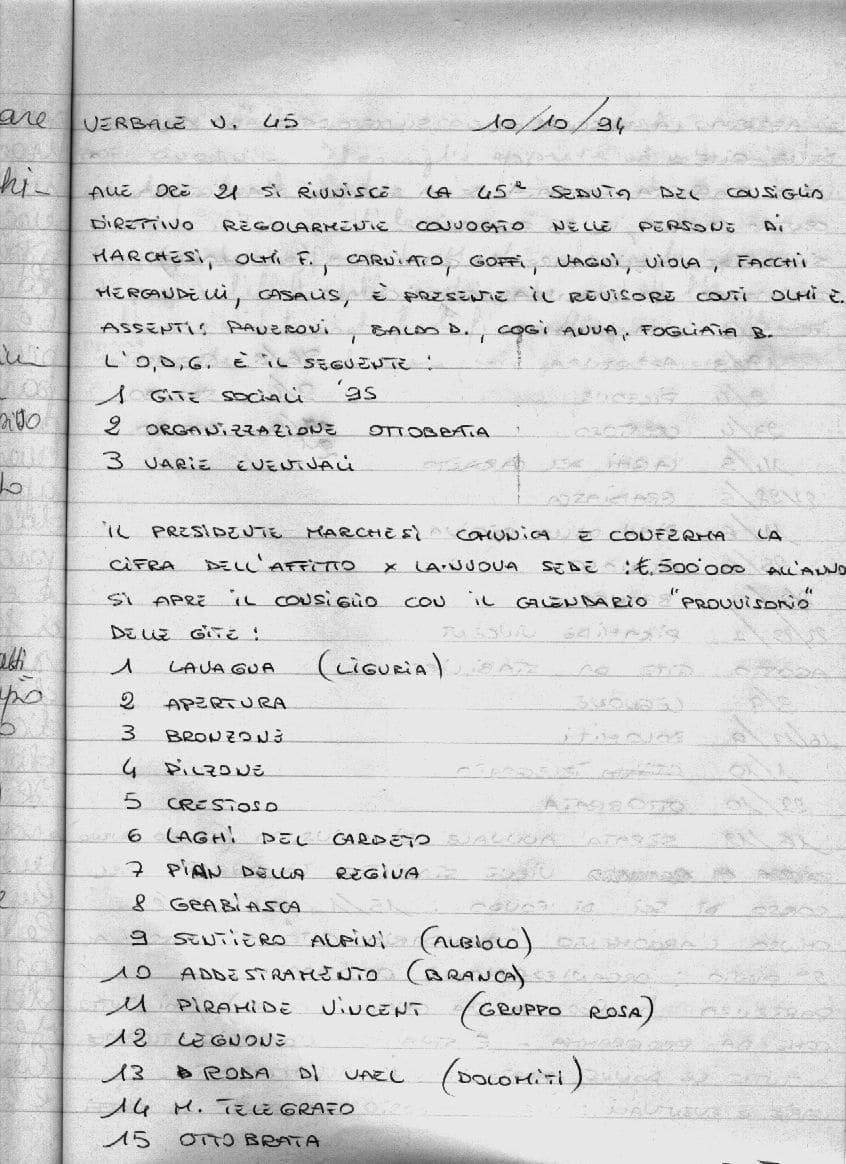 VERBALE N. 45 10/10/94
ALLE ORE 21 SI RIUNISCE LA 45ª SEDUTA DEL CONSIGLIO
DIRETTIVO REGOLARMENTE CONVOGATO NELLE PERSONE DI
MARCHESI, OLMI F., CARNIATO, GOFFI, VAGNI, VIOLA, FACCHI
MERGANDELLI, CASALIS, È PRESENTE IL REVISORE CONTI OLMI E.
ASSENTI: PANERONI, BALDO D., COGI ANNA, FOGLIATA B.
L'O.D.G. È IL SEGUENTE:
1 GITE SOCIALI '95
2 ORGANIZZAZIONE OTTOBRATA
3 VARIE EVENTUALI
IL PRESIDENTE MARCHESI COMUNICA E CONFERMA LA
CIFRA DELL'AFFITTO X LA NUOVA SEDE: £.500'000 ALL'ANNO
SI APRE IL CONSIGLIO CON IL CALENDARIO "PROVVISORIO"
DELLE GITE:
1 LAVAGNA (LIGURIA)
2 APERTURA
3 BRONZONE
4 PILZONE
5 CRESTOSO
6 LAGHI DEL CARDETO
7 PIAN DELLA REGINA
8 GRABIASCA
9 SENTIERO ALPINI (ALBIOLO)
10 ADDESTRAMENTO (BRANCA)
11 PIRAMIDE VINCENT (GRUPPO ROSA)
12 LEGNONE
13 RODA DI VAEL (DOLOMITI)
14 M. TELEGRAFO
15 OTTOBRATA